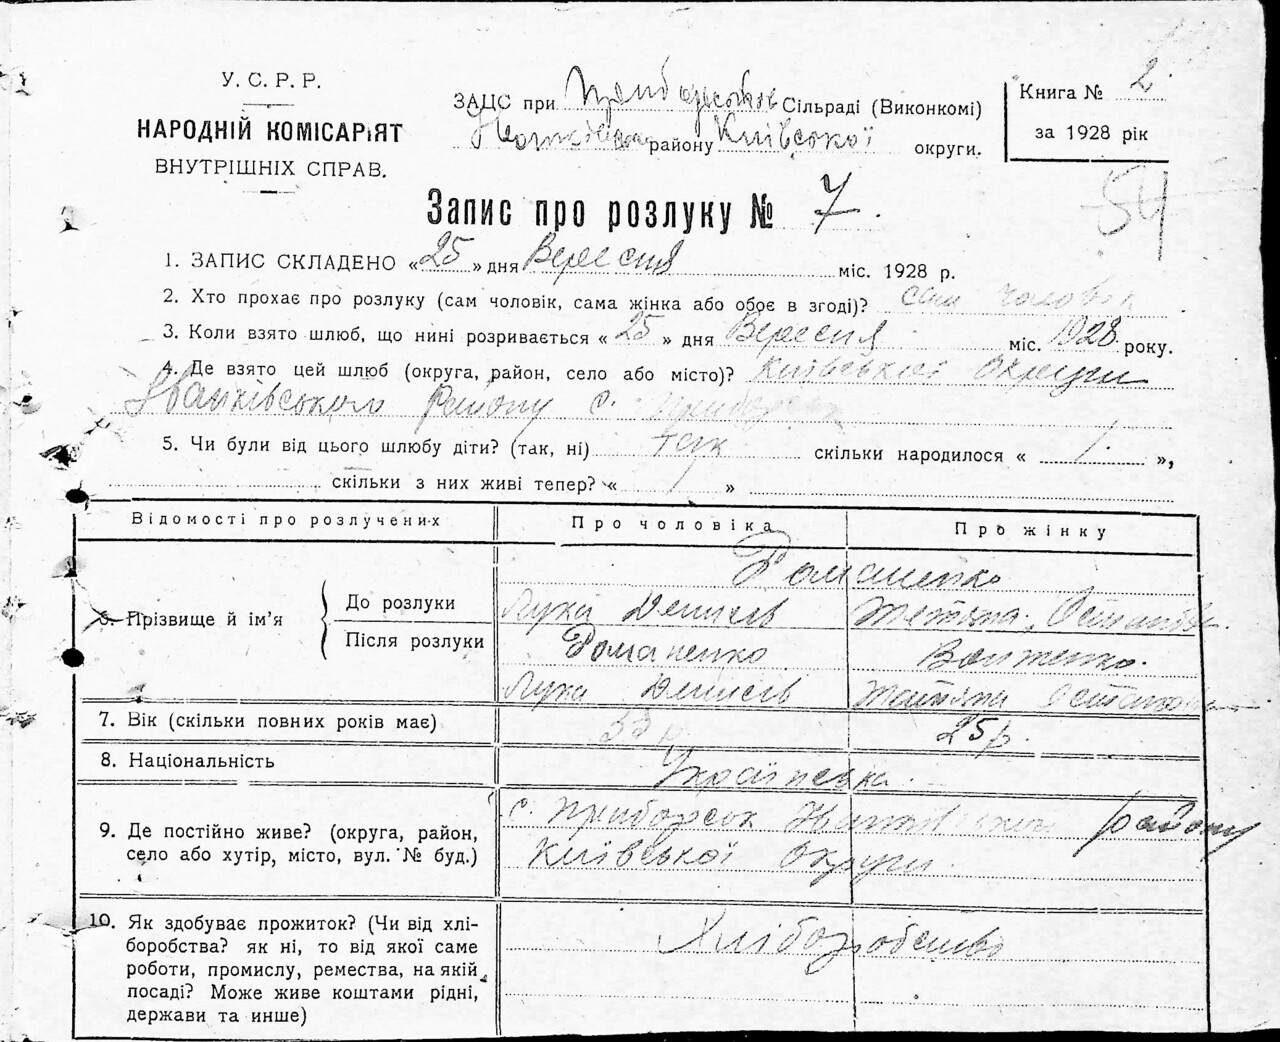 У. С. Р. Р.
НАРОДНІЙ КОМІСАРІЯТ
ВНУТРІШНІХ СПРАВ.
ЗАЦС при Сільраді (Виконкомі)
району Київської округи.
Книга № 2
за 1928 рік
54
Запис про розлуку № 7.
1. ЗАПИС СКЛАДЕНО «25» дня Вересня міс. 1928 р.
2. Хто прохає про розлуку (сам чоловік, сама жінка або обоє в згоді)? сам чоловік
3. Коли взято шлюб, що нині розривається «25» дня Вересня міс. 1928 року.
4. Де взято цей шлюб (округа, район, село або місто)? Київської Округи
Іванківського Району с. Приборськ
5. Чи були від цього шлюбу діти? (так, ні) так скільки народилося « 1. »,
скільки з них живі тепер? « 1 »
Відомості про розлучених Про чоловіка Про жінку
Романенко
6. Прізвище й ім'я До розлуки Лука Денисів
Після розлуки Романенко
Лука Денисів
7. Вік (скільки повних років має) 25 р.
8. Національність Українська.
9. Де постійно живе? (округа, район, село або хутір, місто, вул. № буд.) с. Приборськ району
Київської Округи
10. Як здобуває прожиток? (Чи від хлі-
боробства? як ні, то від якої саме
роботи, промислу, ремества, на якій
посаді? Може живе коштами рідні,
держави та инше)
Хліборобство